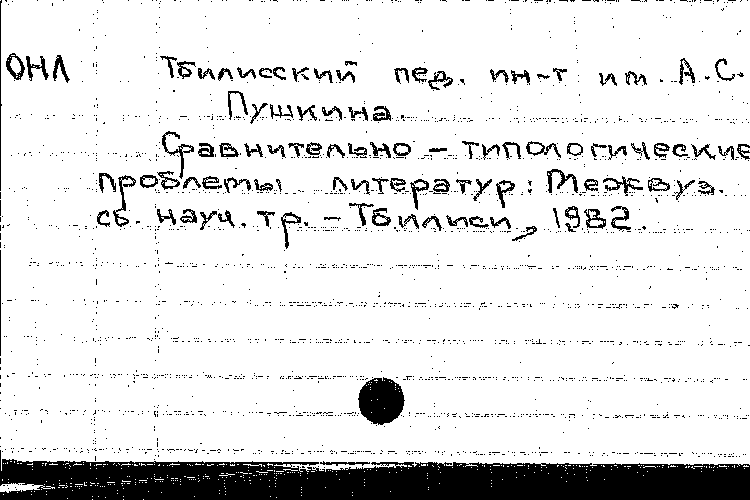 ОНЛ Тбилисский пед. ин-т им. А.С.
Пушкина.
Сравнительно - типологические
проблемы литератур: Межвуз.
сб. науч. тр. - Тбилиси, 1982.